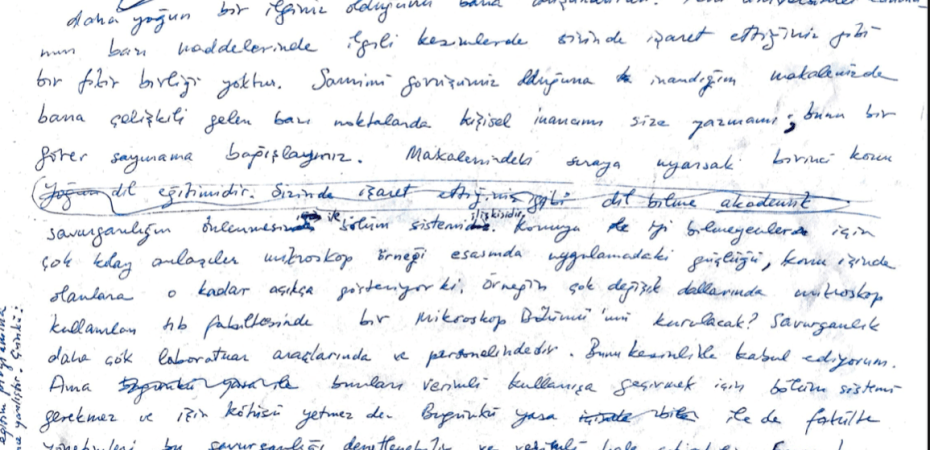 daha yoğun bir ilginiz olduğunu bana
nun bazı maddelerinde ilgili kesimlerde sizinde işaret ettiğiniz gibi
bir fikir birliği yoktur. Samimi görüşünüz olduğuna inandığım makalenizde
bana çelişkili gelen bazı noktalarda kişisel inancımı size yazmamı, bunu bir
görev saymama bağışlayınız. Makalenizdeki sıraya uyarsak birinci konu
yoğun dil eğitimidir. Sizinde işaret ettiğiniz gibi dil bilme akademik
savurganlığın önlenmesi ile bölüm sistemi ilişkisidir. Konuyu iyi bilmeyenler için
çok kolay anlaşılır mikroskop örneği esasında uygulamadaki güçlüğü, konu içinde
olanlara o kadar açıkça gösteriyor ki. Örneğin çok değişik dallarında mikroskop
kullanılan tıp fakültesinde bir Mikroskop Bölümü'mü kurulacak? Savurganlık
daha çok laboratuar araçlarında ve personelindedir. Bunu kesinlikle kabul ediyorum.
Ama bunları verimli kullanışa geçirmek için bölüm sistemi
gerekmez ve işin kötüsü yetmez de. Bugünkü yasa ile de fakülte
yönetimleri bu savurganlığı denetleyebilir ve verimli hale
eğitim programına
Çünkü: